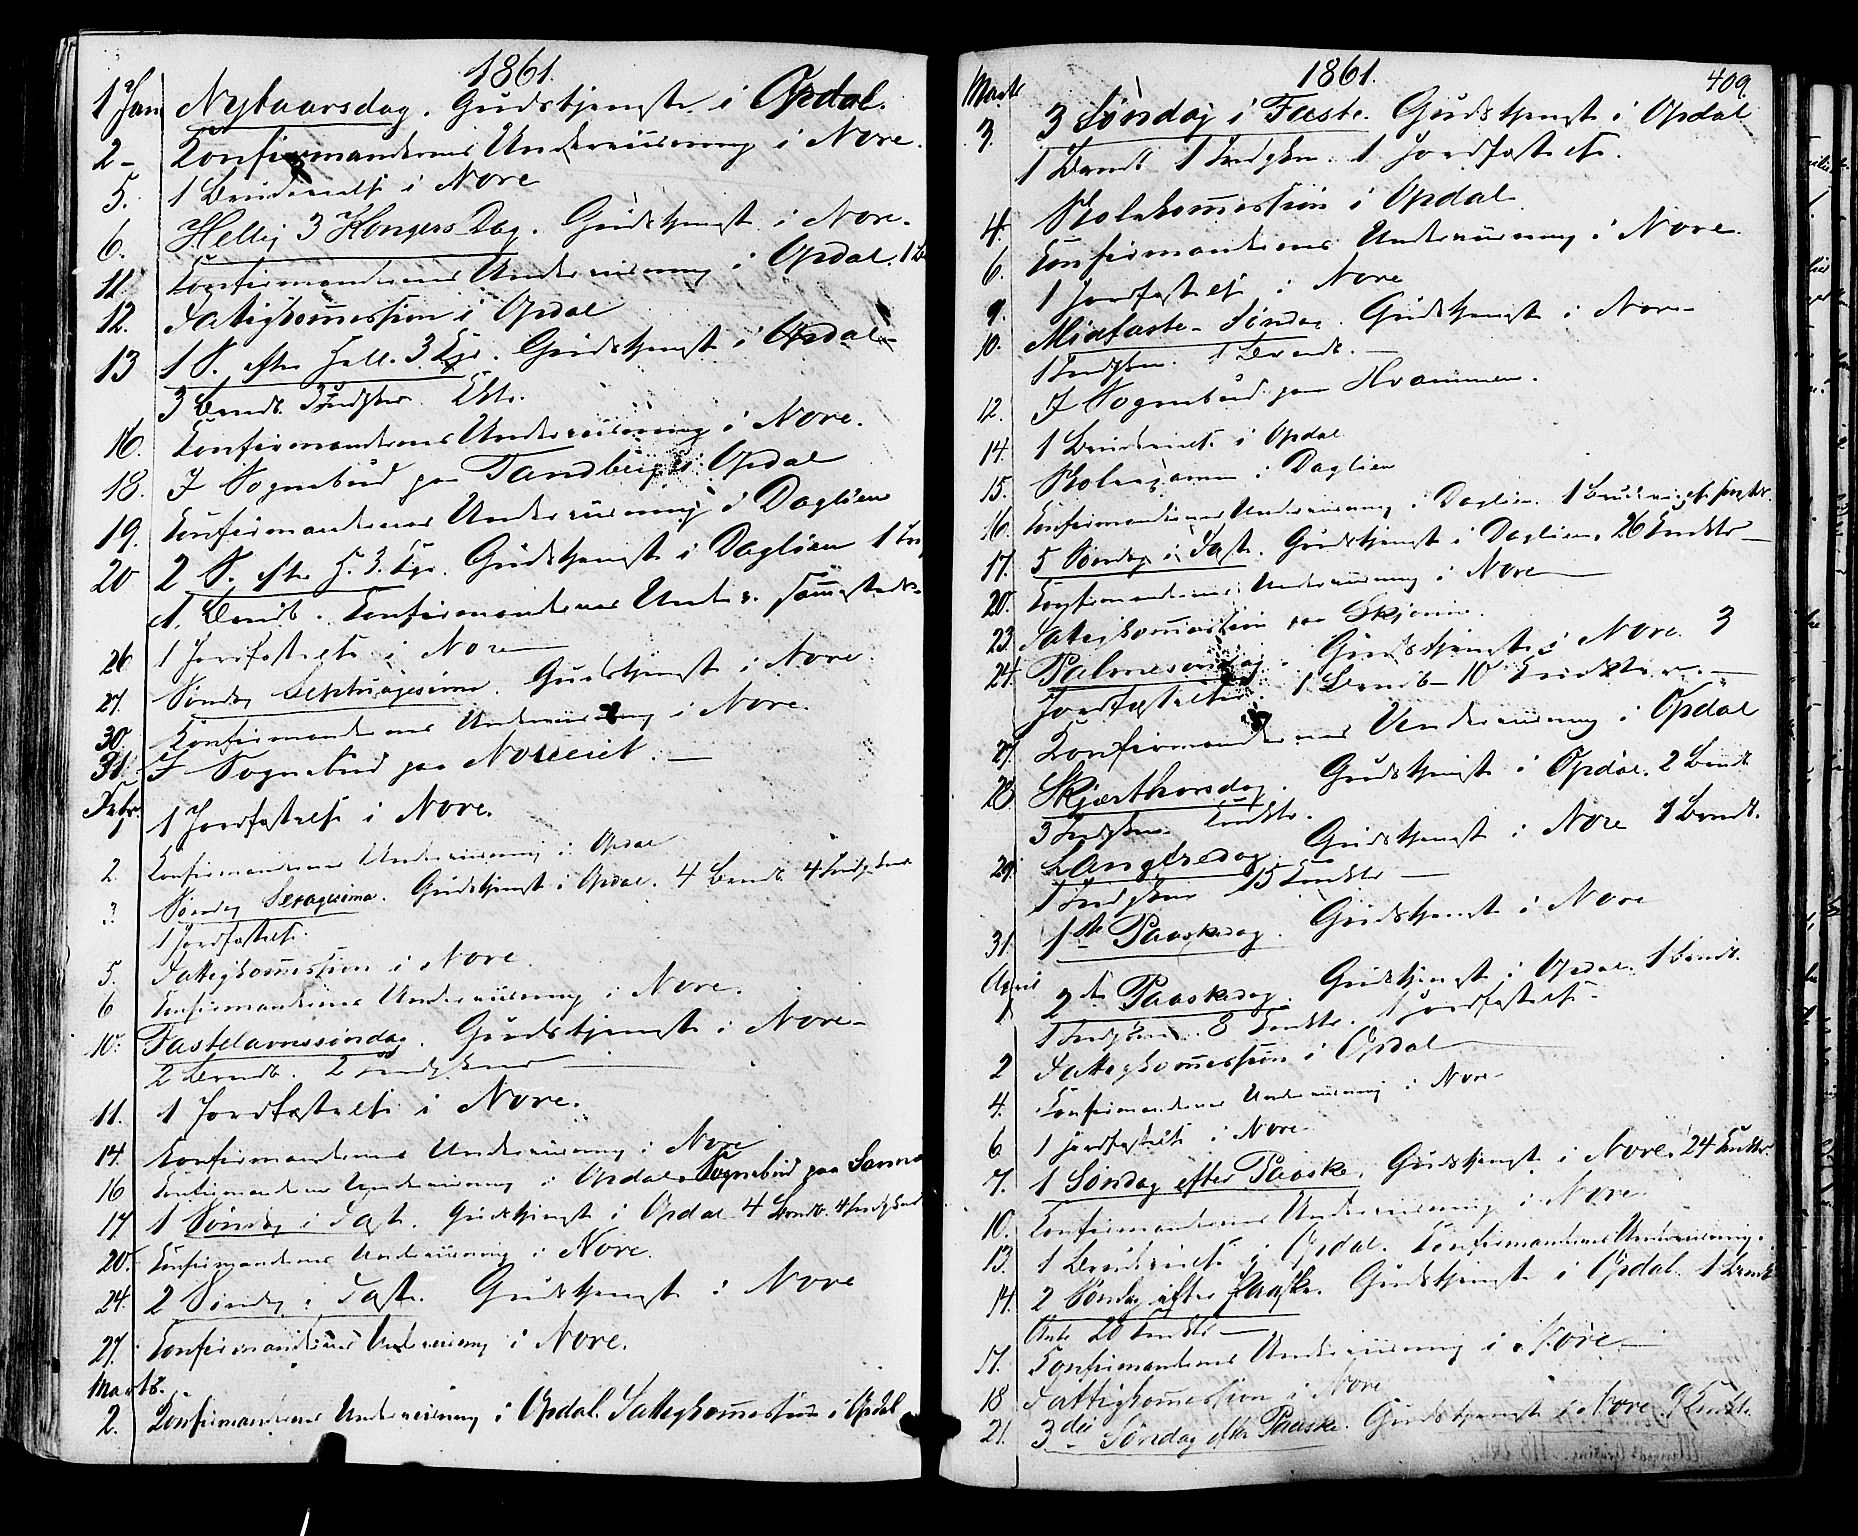 1861.
1 Jan Nytaarsdag. Gudstjeneste i Opdal.
2 - Konfirmandernes Underviisning i Nore.
5. 1 Brudevielse i Nore
6. Hellig 3 Kongers Dag. Gudstjenest i Nore.
11. Konfirmandernes Underviisning i Opdal. 1
12. Fattigkommission i Opdal
13 1 S. efter Hell. 3 Kgr. Gudstjenest i Opdal
3 Barndb.
16. Konfirmandernes Underviisning i Nore.
18. I Sognebud paa Tandberg i Opdal
19. Konfirmandernes Underviisning i Dagliens
20 2 S. efter H. 3. Kgr. Gudstjenest i Daglien
1. Barndb. Konfirmandernes Underv. sammesteds
26 1 Jordfæstelse i Nore
27. Søndag Septuagesima. Gudstjenest i Nore.
30. Konfirmandernes Underviisning i Nore.
31. I Sognebud paa Noreeiet.
Febr.
1 1 Jordfæstelse i Nore.
2. Konfirmandernes Underviisning i Opdal
3 Søndag Sexagesima. Gudstjenest i Opdal. 4 Barndb. 4 Indgkoner
1 Jordfæstelse
5. Fattigkommission i Nore
6 Konfirmandernes Underviisning i Nore.
10. Fastelavnssøndag. Gudstjenest i Nore
2 Barndb. 2 Indgkoner
11. 1 Jordfæstelse i Nore.
14. Konfirmandernes Underviisning i Nore
16 Konfirmandernes Underviisning i Opdal. Sognebud paa
17 1 Søndag i Fast. Gudstjenest i Opdal 4 Barndb. 4 Indgkoner
20. Konfirmandernes Underviisning i Nore.
24. 2 Søndag i Fast. Gudstjenest i Nore
27. Konfirmandernes Underviisning i Nore.
Marts.
2. Konfirmandernes Underviisning i Opdal. Fattigkommission i Opdal
1861. 409.
Marts
3. 3 Søndag i Faste. Gudstjenest i Opdal
1 Barndb 1 Indgkn. 1 Jordfæstelse.
4. Skolekommission i Opdal
6. Konfirmandernes Underviisning i Nore.
9. 1 Jordfæstelse i Nore
10. Midfaste-Søndag. Gudstjenest i Nore
1 Indgkn. 1 Barndb.
12. I Sognebud paa Hvammen.
14. 1 Brudevielse i Opdal
15. Skoleexamen i Daglien
16. Konfirmandernes Underviisning i Daglien. 1 Brudevielse
17. 5 Søndag i Fast. Gudstjenest i Daglien. 26
20. Konfirmandernes Underviisning i Nore
23. Fattigkommission paa Skjønne.
24. Palmesøndag. Gudstjenest i Nore. 3
Jordfæstelser. 1 Barndb 10
27. Konfirmandernes Underviisning i Opdal
28 Skjærthorsdag. Gudstjenest i Opdal. 2 Barndb
3 Indgkn.
29. Langfredag. Gudstjenest i Nore 1 Barndb.
1 Indgkn 15
31. 1ste Paaskedag. Gudstjenest i Nore
April
1 2den Paaskedag. Gudstjenest i Opdal. 1 Barndb.
1 Indgkn. 8 1 Jordfæstelse.
2 Fattigkommission i Opdal
4. Konfirmandernes Underviisning i Nore
6 1 Jordfæstelse i Nore.
7. 1 Søndag efter Paaske. Gudstjenest i Nore. 24
10. Konfirmandernes Underviisning i Nore
13. 1 Brudevielse i Opdal. Konfirmandernes Underviisning.
14. 2 Søndag efter Paaske. Gudstjenest i Opdal. 1 Barndb
20
17. Konfirmandernes Underviisning i Nore
18 Fattigkommission i Nore
21. 3die Søndag efter Paaske. Gudstjenest i Nore. 9